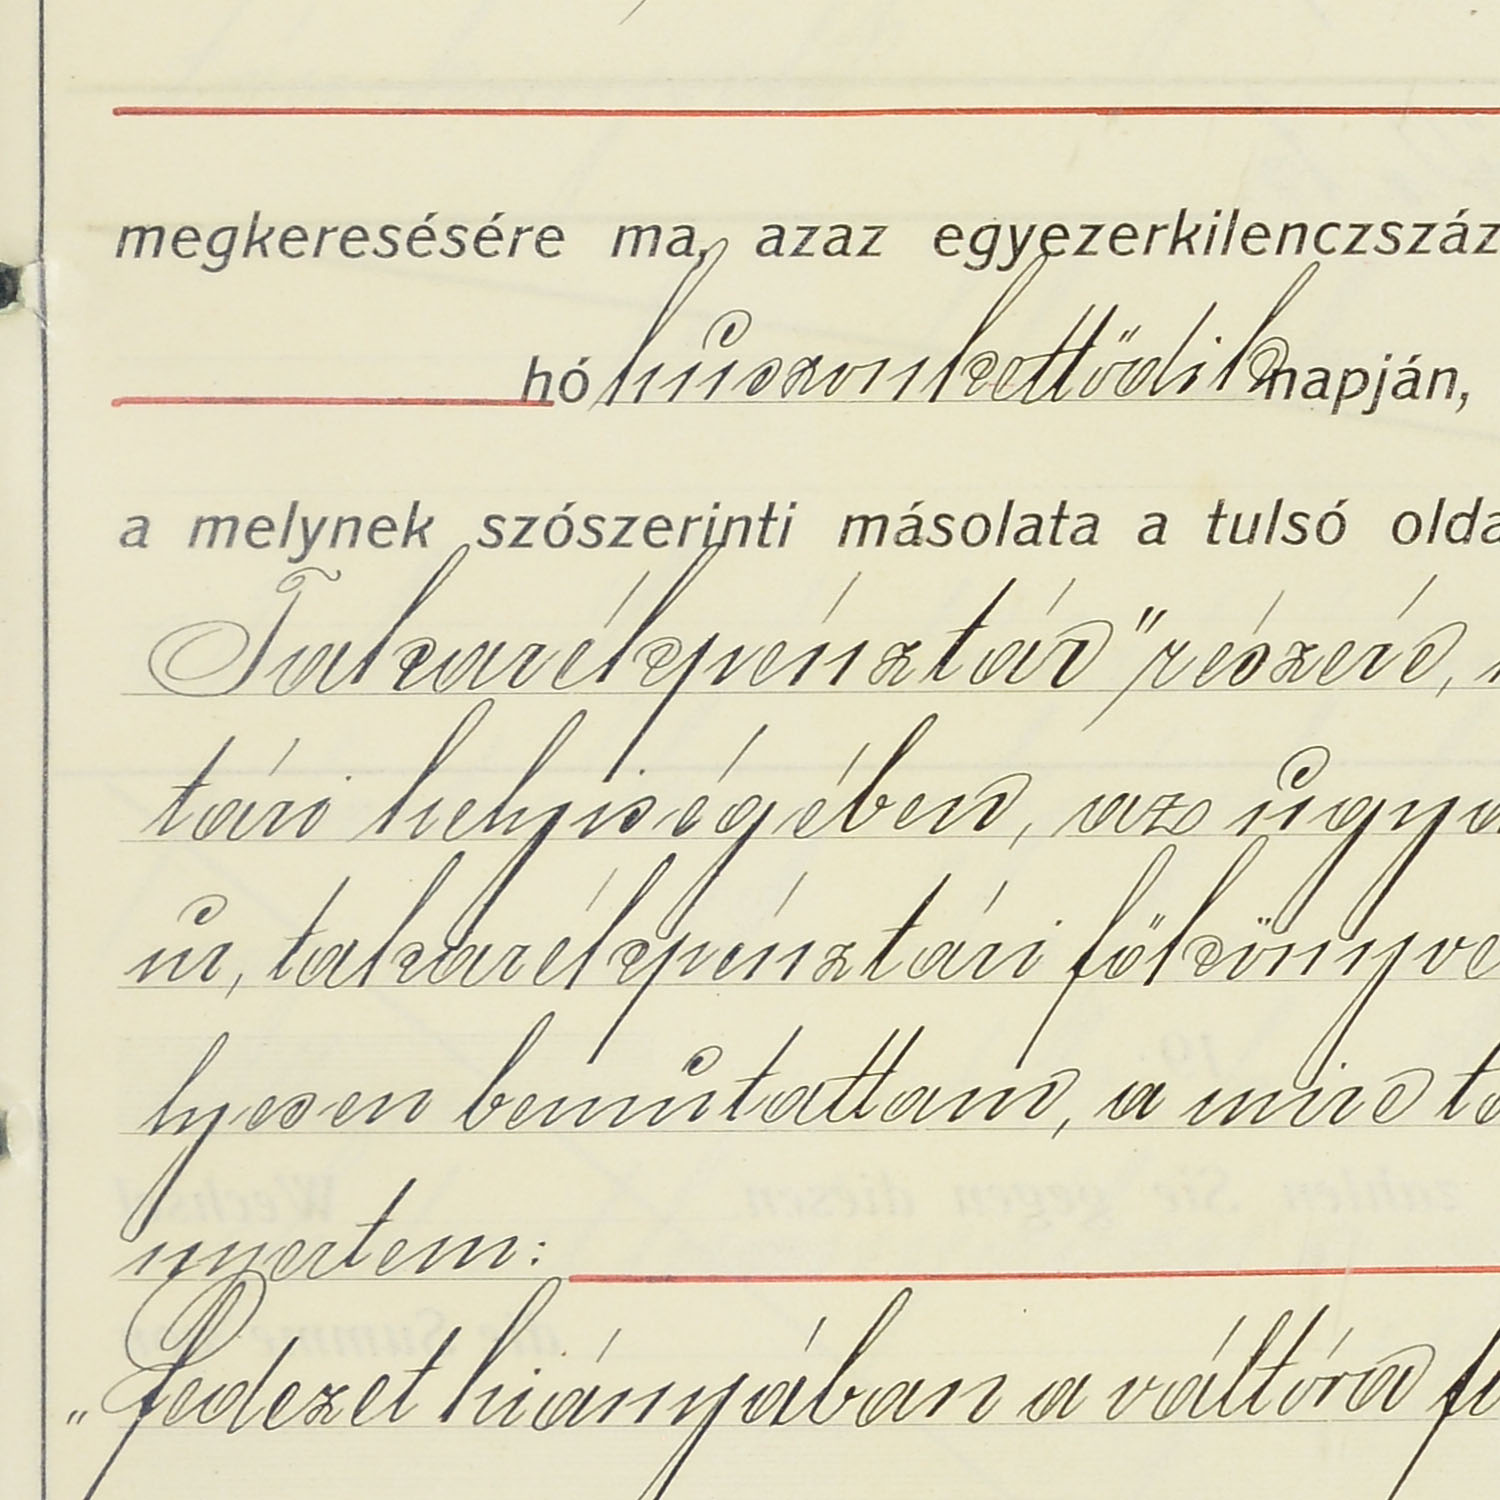 megkeresésére ma, azaz egyezerkilenczszáz
hó huszonkettődik napján,
a melynek szószerinti másolata a tulsó olda
Takarékpénztár" részére,
tári helyiségében, az ugya
úr, takarékpénztári főkönyve
lyesen bemutattam, a mire
nyertem:
„Fedezet hiányában a váltóra